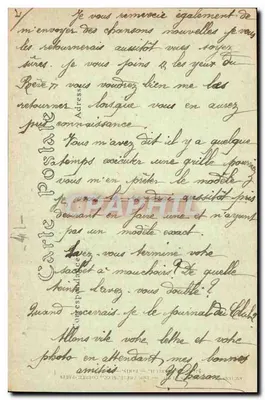 Je vous remercie également de
m'envoyer des chansons nouvelles je vous
les retournerais aussitôt vues soyez
sûres. je vous joins "les yeux du
Rêve" vous voudrez bien me les
retourner lorsque vous en aurez
pris connaissance.
Vous m'avez dit il y a quelque
temps exécuter une grille pourriez
vous m'en prêter le modèle je
aussitôt pris
devant en faire une et n'ayant
pas un modèle exact.
Avez vous terminé votre
sachet à mouchoirs? De quelle
teinte l'avez vous doublé?
Quand recevrais-je le journal du Club?
Allons vite votre lettre et votre
photo en attendant mes bonnes
amitiés
Carte Postale
Correspondance
Adresse
CPAPHIL